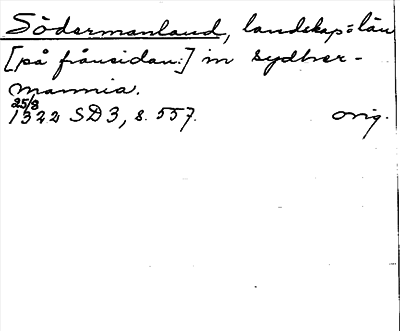 Södermanland, landskap o. län
[på frånsidan:] in sydher-
mannia.
25/8
1322 SD3, s. 557. orig.